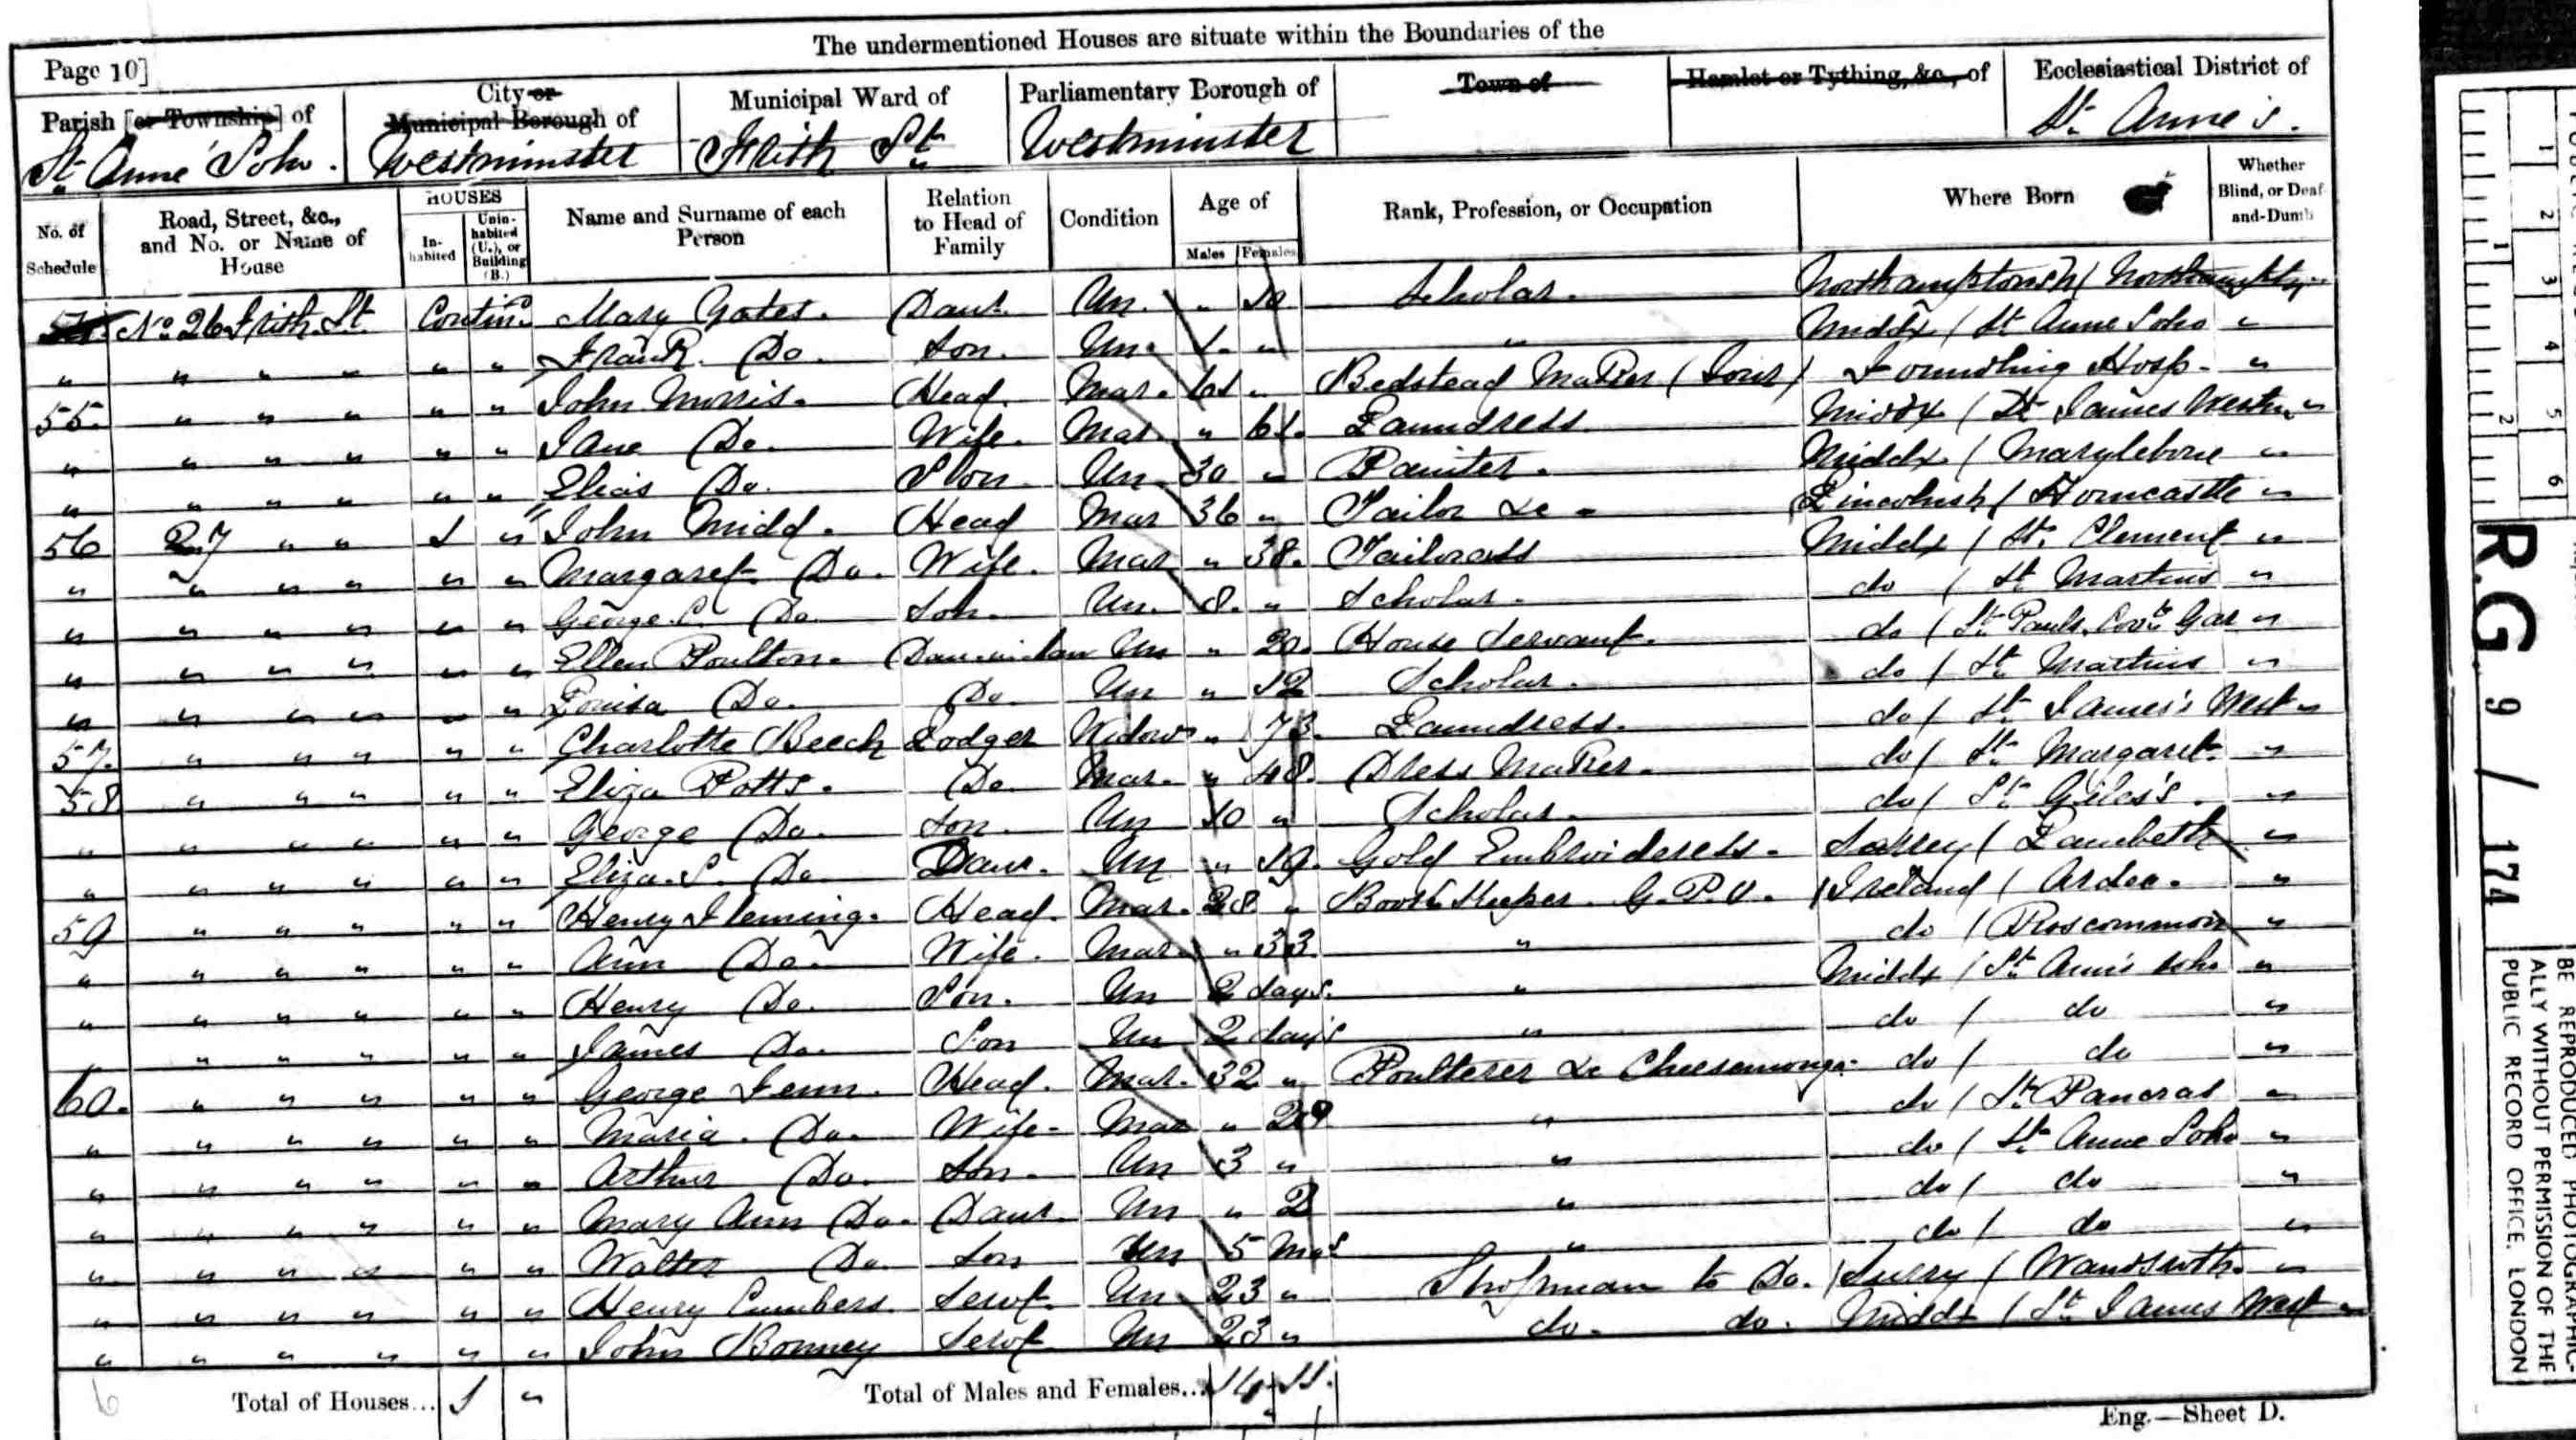 The undermentioned Houses are situate within the Boundaries of the
Page 10]
Parish [or Township] of
City or Municipal Borough of
Municipal Ward of
Parliamentary Borough of
Town of
Hamlet or Tything, &c., of
Ecclesiastical District of
St Anne Soho.
Westminster
Frith St
Westminster
St Anne's.
No. of Schedule
Road, Street, &c., and No. or Name of House
HOUSES
In-habited
Unin-habited (U.), or Building (B.)
Name and Surname of each Person
Relation to Head of Family
Condition
Age of
Males
Females
Rank, Profession, or Occupation
Where Born
Whether Blind, or Deaf-and-Dumb
No 26 Frith St Contin. Mary Gates. Daur. Un. " 10 Scholar. Northamptonsh /
" " " " " " Frank Do. Son. Un. 1. " " Middx / St Anne Soho "
55. " " " " " John Morris. Head. Mar. 61 " Bedstead Maker (Jour) Foundling Hosp. "
" " " " " " Jane Do. Wife. Mar. " 61. Laundress Middx / St James Westm "
" " " " " " Elias Do. Son Un 30 " Painter. Middx / Marylebone "
56 27 " " 1 " John Midd. Head Mar 36 " Tailor &c Lincolnsh / Horncastle "
" " " " " " Margaret Do. Wife. Mar " 38. Tailoress Middx / St. Clement "
" " " " " " George C. Do Son. Un. 8. " Scholar. do / St Martins "
" " " " " " Ellen Poulton. Daur-in-law Un " 20. House Servant. do / St Pauls, Covt Gar "
" " " " " " Louisa Do. Do. Un " 12 Scholar. do / St Martins "
57. " " " " " Charlotte Beech Lodger Widow " 73. Laundress. do / St James's West "
58 " " " " " Eliza Potts. Do. Mar. " 48. Dress Maker. do / St Margaret "
" " " " " " George Do. Son. Un 10 " Scholar. do / St Giles's. "
" " " " " " Eliza S. Do. Daur. Un " 19. Gold Embroideress. Surrey / Lambeth "
59 " " " " " Henry Fleming. Head. Mar. 28 " Keeper G.P.O. Ireland / "
" " " " " " Ann Do. Wife. Mar. " 33 " do / Roscommon "
" " " " " " Henry Do. Son. Un 2 days. " Middx / St Ann's Soho "
" " " " " " James Do. Son Un 2 days " do / do "
60. " " " " " George Fenn. Head. Mar. 32 " Poulterer & Cheesemonger do / do "
" " " " " " Maria. Do. Wife. Mar " 29 " do / St Pancras "
" " " " " " Arthur Do. Son. Un 3 " " do / St Anne Soho "
" " " " " " Mary Ann Do. Daur. Un " 2 " do / do "
" " " " " " Walter Do. Son Un 5 Mos " do / do "
" " " " " " Henry Cumbers Servt. Un 23 " Shopman to Do. Surry / Wandswth. "
" " " " " " John Bonney Servt Un 23 " do. do. Middx / St James West "
Total of Houses... 1 "
Total of Males and Females... 14 11.
Eng.—Sheet D.
R.G. 9 / 174
BE REPRODUCED PHOTOGRAPHIC-
ALLY WITHOUT PERMISSION OF THE
PUBLIC RECORD OFFICE, LONDON
1 2 3 4 5 6
1 2